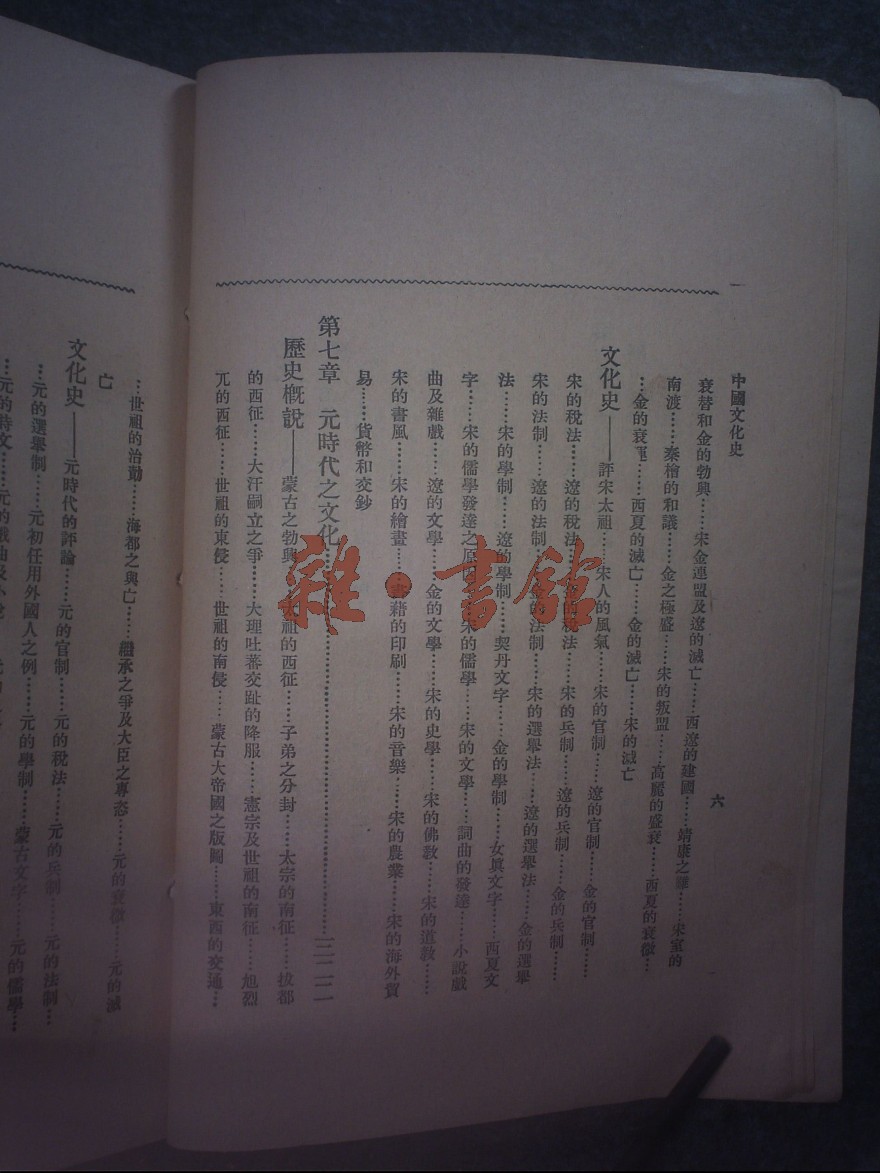 中國文化史
六
衰替和金的勃興……宋金連盟及遼的滅亡……西遼的建國……靖康之難……宋室的
南渡……秦檜的和議……金之極盛……宋的叛盟……高麗的盛衰……西夏的衰微…
…金的衰運……西夏的滅亡……金的滅亡……宋的滅亡
文化史——評宋太祖……宋人的風氣……宋的官制……遼的官制……金的官制……
宋的稅法……遼的稅法……金的稅法……宋的兵制……遼的兵制……金的兵制……
宋的法制……遼的法制……金的法制……宋的選舉法……遼的選舉法……金的選舉
法……宋的學制……遼的學制……契丹文字……金的學制……女眞文字……西夏文
字……宋的儒學發達之原因……宋的儒學……宋的文學……詞曲的發達……小說戲
曲及雜戲……遼的文學……金的文學……宋的史學……宋的佛教……宋的道教……
宋的書風……宋的繪畫……書籍的印刷……宋的音樂……宋的農業……宋的海外貿
易……貨幣和交鈔
第七章 元時代之文化……
歷史概說——蒙古之勃興……太祖的西征……子弟之分封……太宗的南征……拔都
的西征……大汗嗣立之爭……大理吐蕃交趾的降服……憲宗及世祖的南征……旭烈
兀的西征……世祖的東侵……世祖的南侵……蒙古大帝國之版圖……東西的交通…
…世祖的治勳……海都之興亡……繼承之爭及大臣之專恣……元的衰微……元的滅
亡
文化史——元時代的評論……元的官制……元的稅法……元的兵制……元的法制…
…元的選舉制……元初任用外國人之例……元的學制……蒙古文字……元的儒學…
…元的詩文……元的戲曲及小說
雜·書館